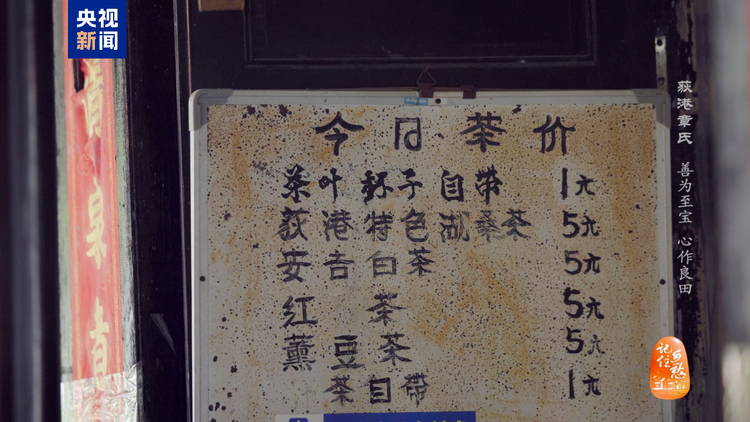 央视
新闻
今日茶价
茶叶杯子自带 1元
荻港特色湖桑茶 5元
安吉白茶 5元
红茶 5元
薰豆茶 5元
茶自带 1元
荻港章氏 善为至宝 心作良田
记住乡愁